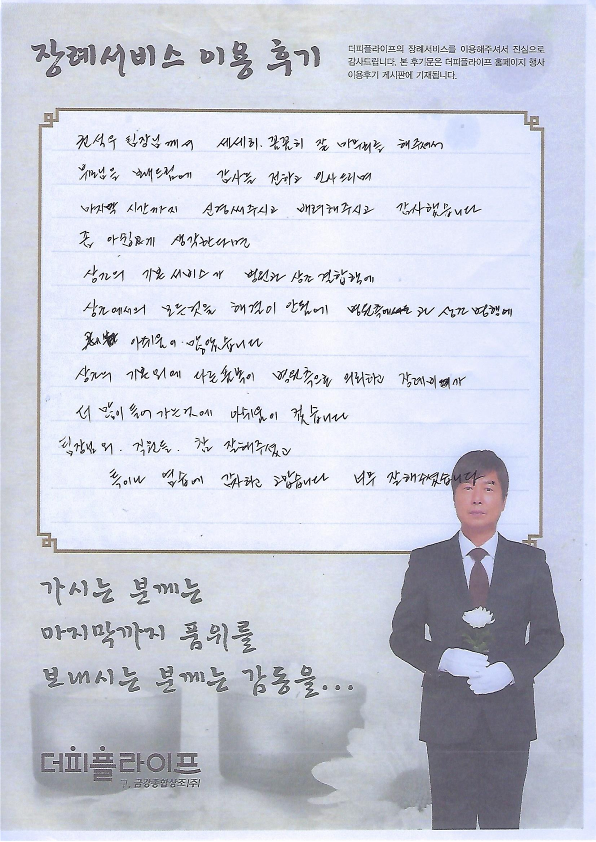 장례서비스 이용 후기
더피플라이프의 장례서비스를 이용해주셔서 진심으로
감사드립니다. 본 후기문은 더피플라이프 홈페이지 행사
이용후기 게시판에 기재됩니다.
팀장님께서 세세히. 꼼꼼히 잘 마무리를 해주셔서
부모님을 보내드림에 감사를 전하고 인사드리며
마지막 시간까지 신경써주시고 배려해주시고 감사했습니다
좀 아쉽요게 생각한다면
상조의 기본 서비스가 병원과 상조 결합책에
상조에서의 모든것을 해결이 안됨에 병원측에서는 과 상조 병행에
아쉬움이 많았습니다
상조의 기본외에 다른 병원측으로 의뢰하고 장례
더 많이 들어가는것에 아쉬움이 컸습니다
팀장님 외. 직원들. 참 잘해주셨고
특히나 염습에 감사하고 고맙습니다 너무 잘해주셨습니다
가시는 분께는
마지막까지 품위를
보내시는 분께는 감동을...
더피플라이프
금강종합상조(주)